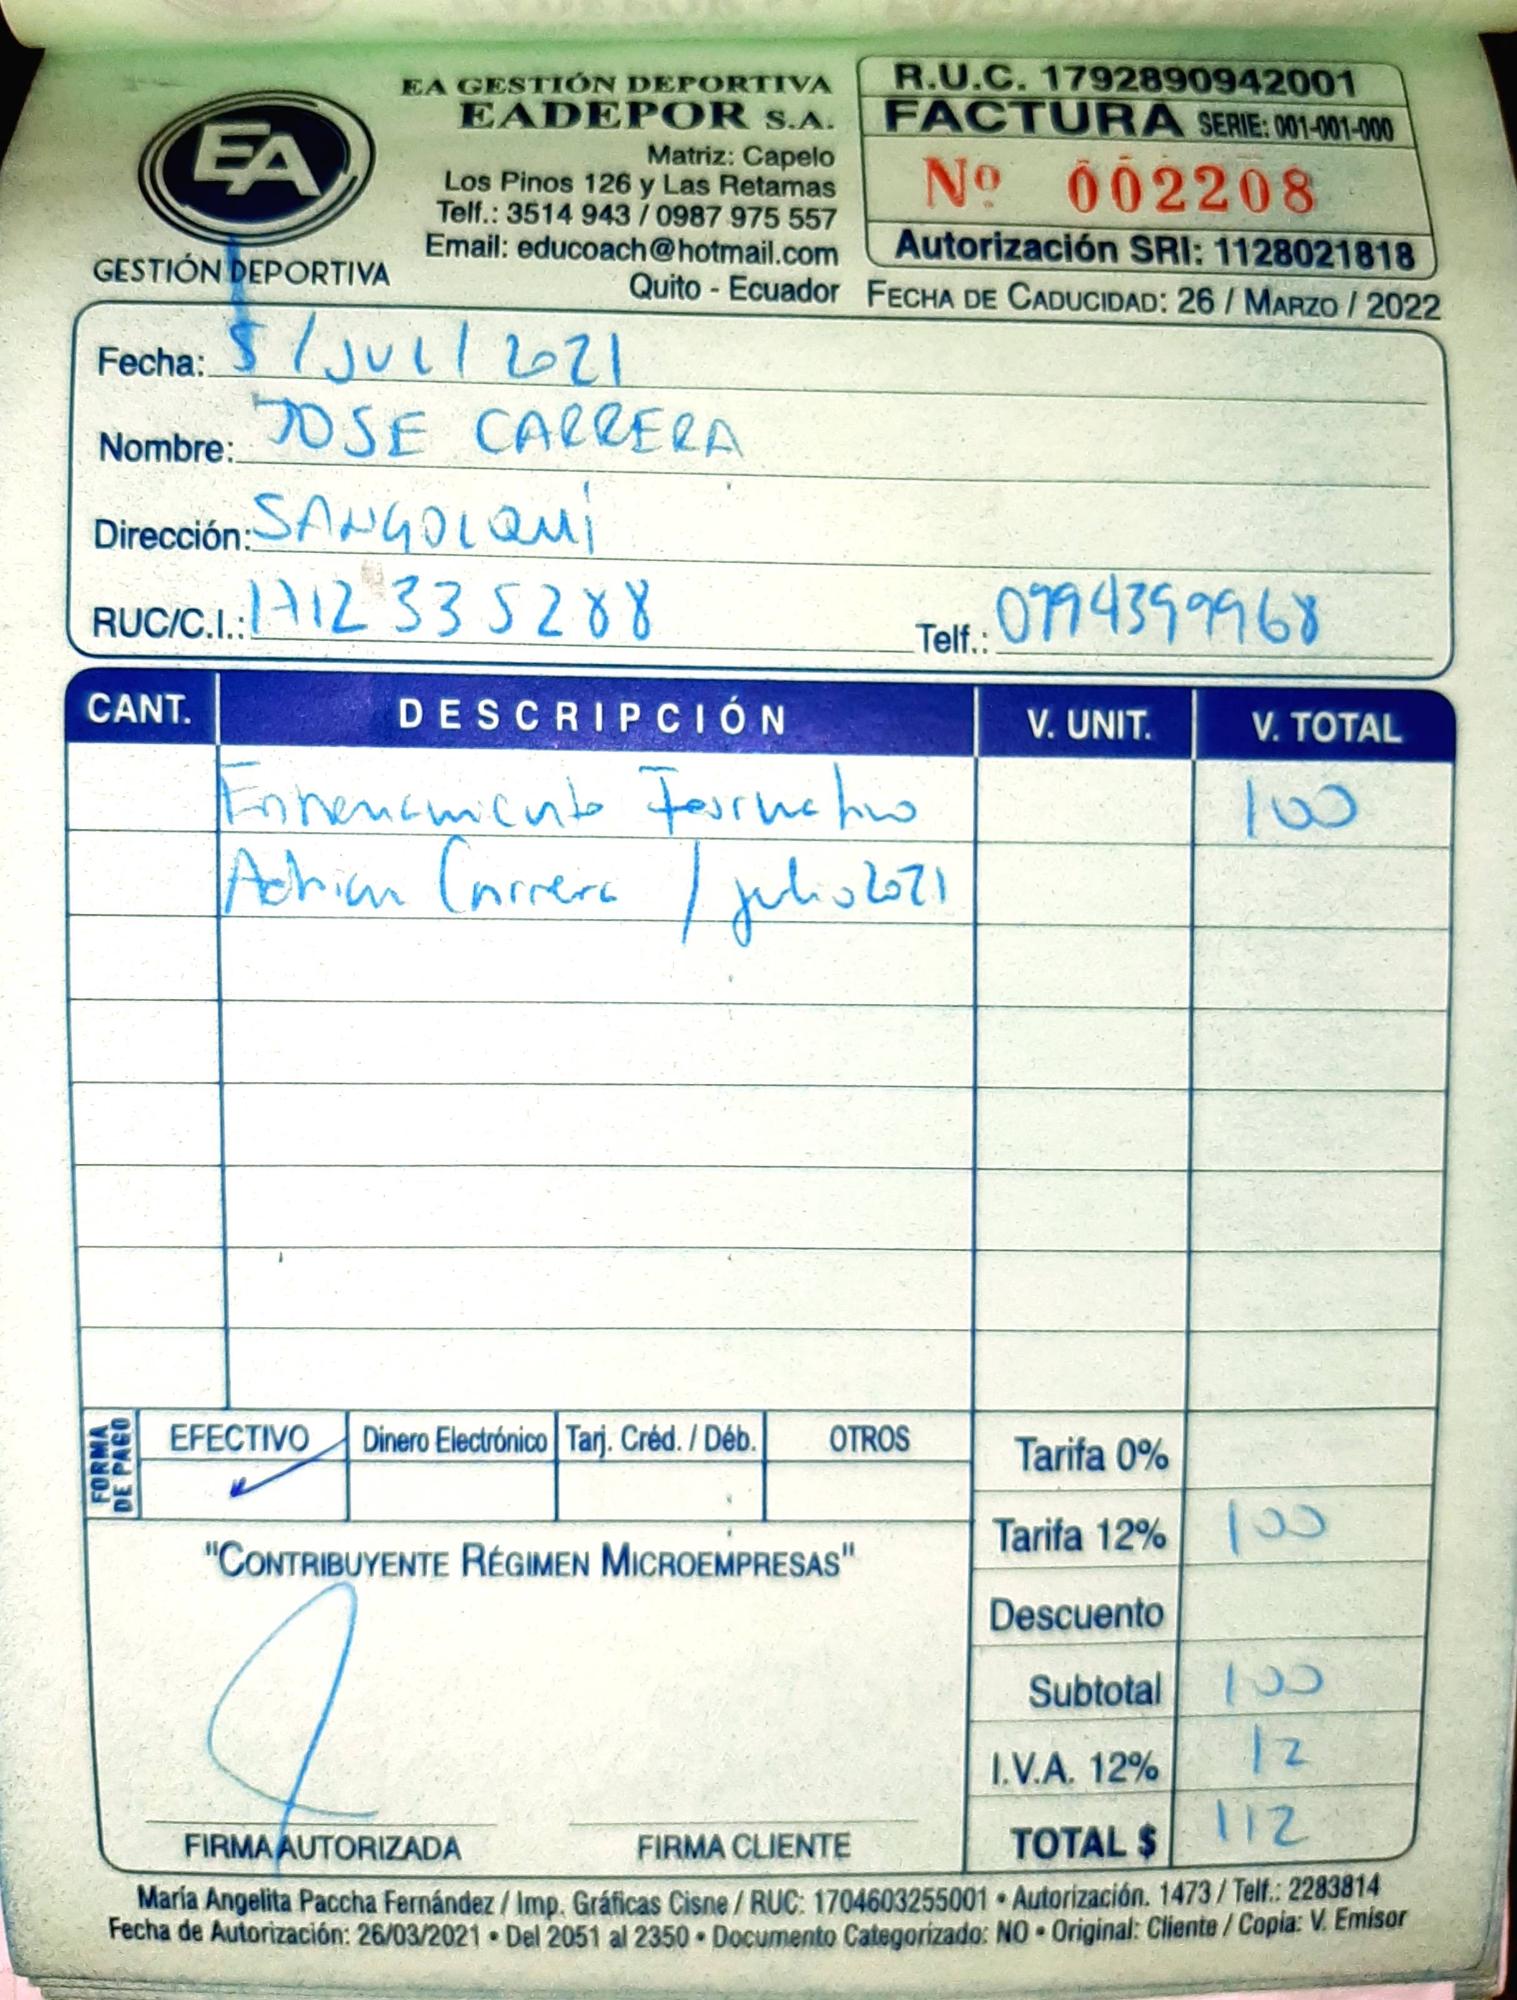 EA
GESTIÓN DEPORTIVA
EA GESTIÓN DEPORTIVA
EADEPOR S.A.
Matriz: Capelo
Los Pinos 126 y Las Retamas
Telf.: 3514 943 / 0987 975 557
Email: educoach@hotmail.com
Quito - Ecuador
R.U.C. 1792890942001
FACTURA SERIE: 001-001-000
Nº 002208
Autorización SRI: 1128021818
FECHA DE CADUCIDAD: 26 / MARZO / 2022
Fecha: 5 / JUL / 2021
Nombre: JOSE CARRERA
Dirección: SANGOLQUÍ
RUC/C.I.: 1712335288 Telf.: 0994399968
CANT. DESCRIPCIÓN V. UNIT. V. TOTAL
Entrenamiento Formativo 100
Adrian Carrera / julio 2021
FORMA DE PAGO
EFECTIVO Dinero Electrónico Tarj. Créd. / Déb. OTROS
Tarifa 0%
Tarifa 12% 100
"CONTRIBUYENTE RÉGIMEN MICROEMPRESAS"
Descuento
Subtotal 100
I.V.A. 12% 12
TOTAL $ 112
FIRMA AUTORIZADA FIRMA CLIENTE
María Angelita Paccha Fernández / Imp. Gráficas Cisne / RUC: 1704603255001 • Autorización. 1473 / Telf.: 2283814
Fecha de Autorización: 26/03/2021 • Del 2051 al 2350 • Documento Categorizado: NO • Original: Cliente / Copia: V. Emisor